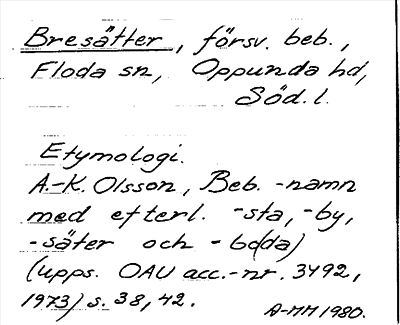 Bresätter, försv. beb.,
Floda sn, Oppunda hd,
Söd. l.
Etymologi.
A.-K. Olsson, Beb. -namn
med efterl. -sta, -by,
-säter och -bo(da)
(upps. OAU acc.-nr. 3492,
1973) s. 38, 42.
A-MH 1980.